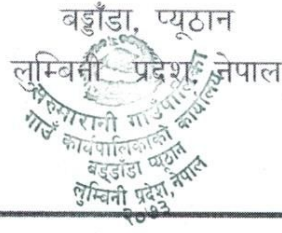 बड्डाँडा, प्यूठान
लुम्बिनी प्रदेश, नेपाल
सरुमारानी गाउँपालिका
गाउँ कार्यपालिकाको कार्यालय
बड्डाँडा प्यूठान
लुम्बिनी प्रदेश, नेपाल
२०७३